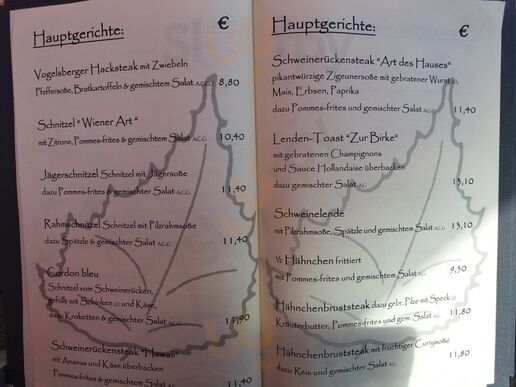 Hauptgerichte: €
Vogelsberger Hacksteak mit Zwiebeln
Pfeffersoße, Bratkartoffeln & gemischtem Salat A,C,G,J 8,80
Schnitzel "Wiener Art"
mit Zitrone, Pommes-frites & gemischtem Salat A,C,G 10,40
Jägerschnitzel Schnitzel mit Jägersoße
dazu Pommes-frites & gemischter Salat A,C,G 11,40
Rahmschnitzel Schnitzel mit Pilzrahmsoße
dazu Spätzle & gemischter Salat A,C,G 11,40
Cordon bleu
Schnitzel vom Schweinerücken,
gefüllt mit Schinken und Käse,
dazu Kroketten & gemischter Salat A,C,G 11,90
Schweinerückensteak "Hawaii"
mit Ananas und Käse überbacken
Pommes-frites & gemischtem Salat A,C,G 11,40
Hauptgerichte: €
Schweinerückensteak "Art des Hauses"
pikantwürzige Zigeunersoße mit gebratener Wurst
Mais, Erbsen, Paprika
dazu Pommes-frites und gemischter Salat A,G 11,40
Lenden-Toast "Zur Birke"
mit gebratenen Champignons
und Sauce Hollandaise überbacken
dazu gemischter Salat A,C,G 13,10
Schweinelende
mit Pilzrahmsoße, Spätzle und gemischtem Salat A,C,G 13,10
½ Hähnchen frittiert
mit Pommes-frites und gemischtem Salat A,G 9,50
Hähnchenbruststeak dazu gebr. Pilze mit Speck
Kräuterbutter, Pommes-frites und gem. Salat A,G 11,80
Hähnchenbruststeak mit fruchtiger Currysoße
dazu Reis und gemischter Salat A,G 11,80